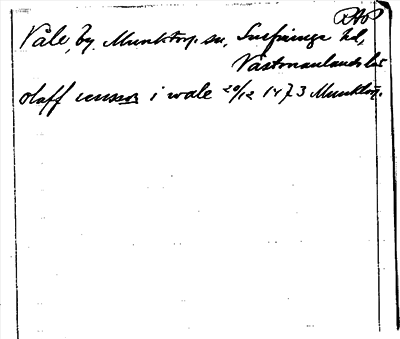 RAP
Våle, by, Munktorp sn, Snefringe hd,
Västmanlands län
olaff i wale 20/12 1473 Munktorp.